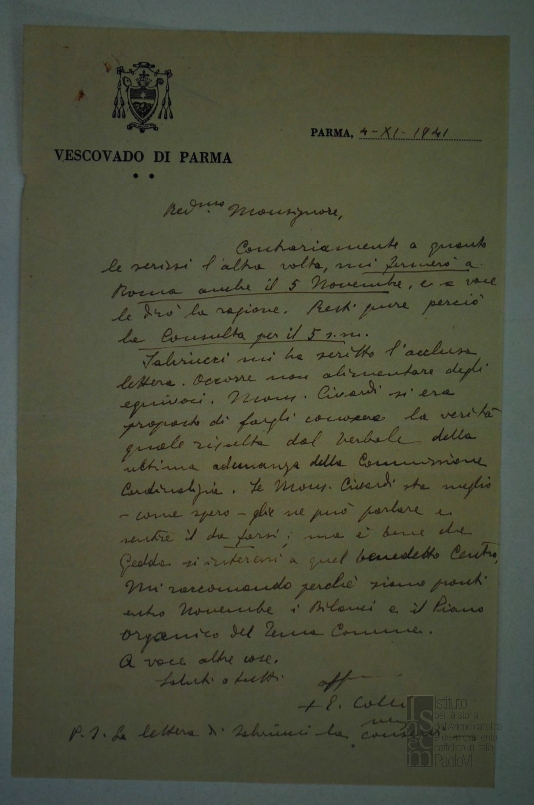 PARMA, 4-XI-1941
VESCOVADO DI PARMA
Red.mo Monsignore,
Contrariamente a quanto
le scrissi l'altra volta, mi fermerò a
Roma anche il 5 Novembre, e a voce
le dirò la ragione. Resti pure perciò
la Consulta per il 5 s.m.
mi ha scritto l'acclusa
lettera. Occorre non alimentare degli
equivoci. Mons. Civardi si era
proposto di fargli conoscere la verità
quale risulta dal Verbale della
ultima adunanza della Commissione
Cardinalizia. Se Mons. Civardi sta meglio
- come spero - gliene può parlare e
sentire il da farsi; ma è bene che
Gedda si interessi a quel benedetto Centro.
Mi raccomando perchè siano pronti
entro Novembre i Bilanci e il Piano
organico del Tema Comune.
A voce altre cose.
Saluti a tutti
aff
+ E. Colli
P.S. La lettera di la conservi
Istituto
per la storia
dell'Azione cattolica
e del movimento
cattolico in Italia
Paolo VI